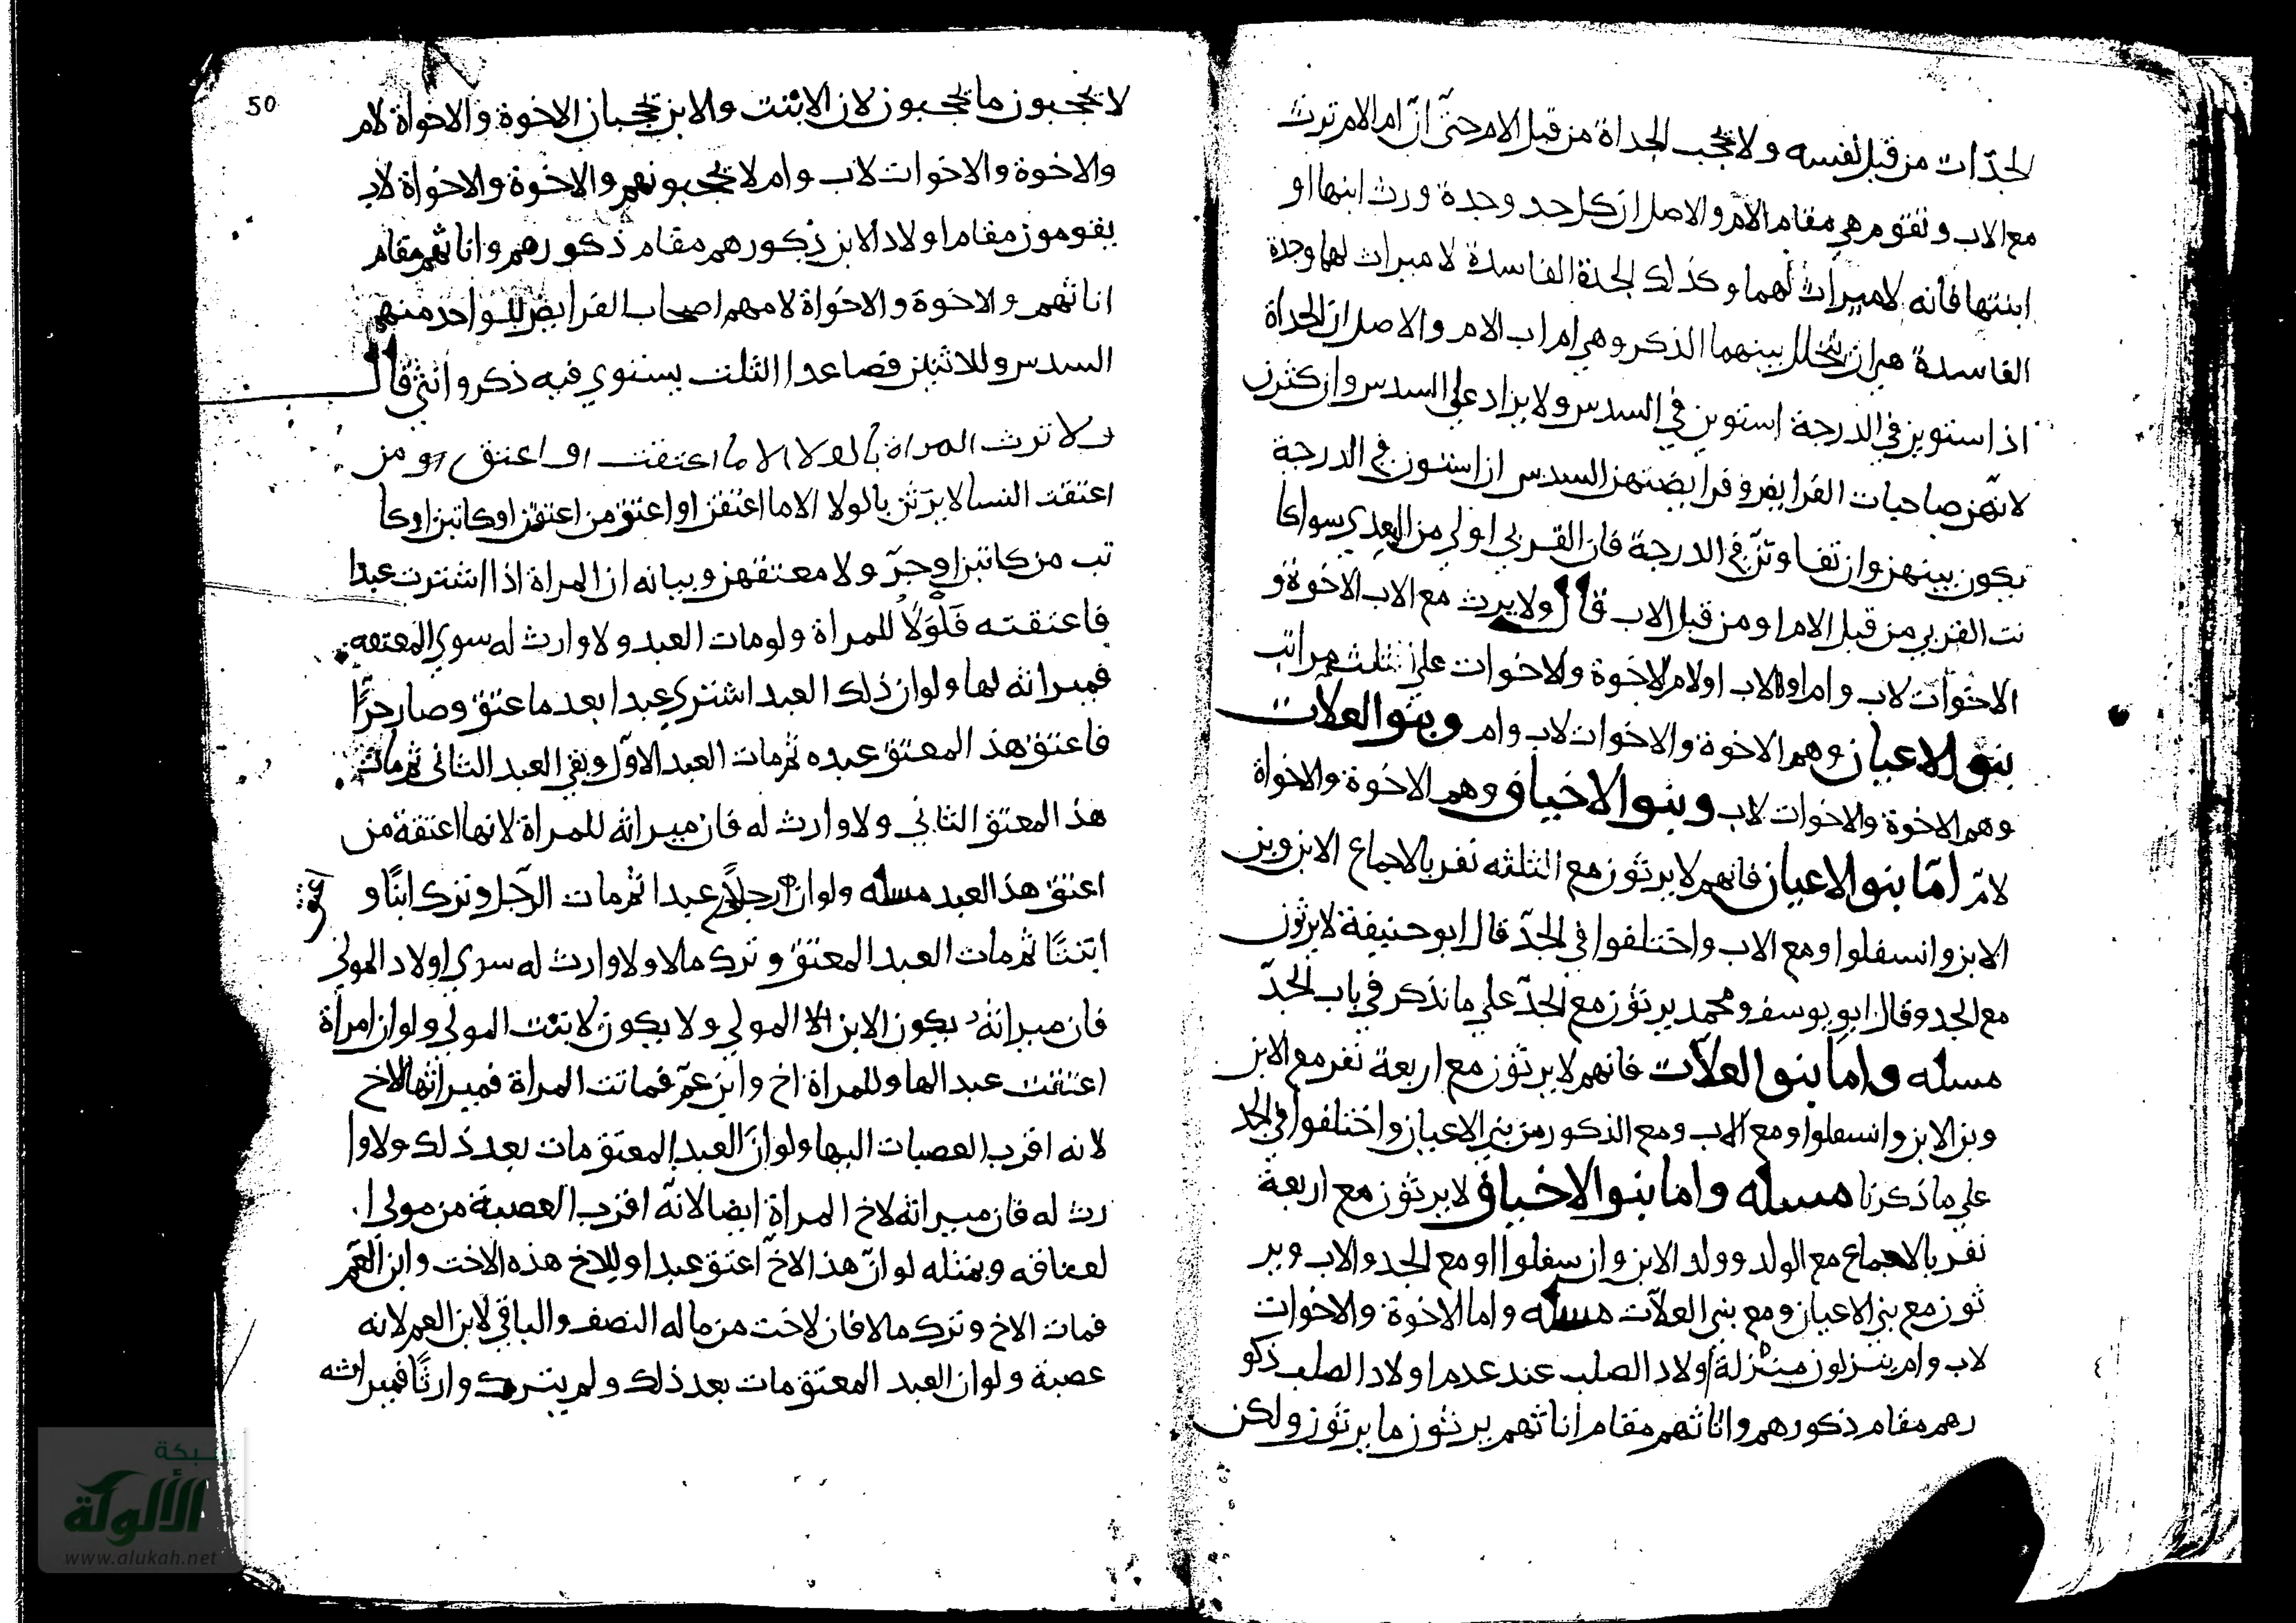 لجدّات من قبل نفسه ولا يحجب الجداة من قبل الام حتّى انّ ام الام ترث
مع الاب وتقوم هي مقام الام والاصل ان كل جد وجدة ورث ابنها او
ابنتها فانه لا ميراث لهما وكذلك الجدة الفاسدة لا ميراث لها وجدة
الفاسدة هي ان يتخلل بينهما الذكر وهي ام اب الام والاصل ان الجداة
اذا ستوين في الدرجة استوين في السدس ولا يزاد علي السدس وان كثرن
لانّهن صاحبات الفرايض وفرايضهن السدس ان استون في الدرجة
يكون بينهن وان تفاوتنّ في الدرجة فان القربي اولي من البعدي سوا كا
نت القربي من قبل الام او من قبل الاب قال ولا يرث مع الاب الاخوة و
الاخوات لاب وام او لاب او لام الاخوة والاخوات علي ثلث مراتب
بنو الاعيان وهم الاخوة والاخوات لاب وام وبنو العلات
وهم الاخوة والاخوات لاب وبنو الاخياف وهم الاخوة والاخواة
لامّ امّا بنو الاعيان فانهم لا يرثون مع الثلثه نفر بالاجماع الابن وبن
الابن وانسفلوا ومع الاب واختلفوا في الجدّ قال ابو حنيفة لا يرثون
مع الجد وقال ابو يوسف ومحمد يرثون مع الجدّ علي ما نذكر في باب الجدّ
مسله واما بنو العلّات فانهم لا يرثون مع اربعة نفر مع الابن
وبن الابن وانسفلوا ومع الاب ومع الذكور من بني الاعيان واختلفوا في الجد
علي ما ذكرنا مسله واما بنو الاخياف لا يرثون مع اربعة
نفر بالاجماع مع الولد وولد الابن وان سفلوا او مع الجد والاب وير
ثون مع بني الاعيان ومع بني العلّات مسله واما الاخوة والاخوات
لاب وام ينزلون منزلة اولاد الصلب عند عدم اولاد الصلب ذكو
رهم مقام ذكورهم واناثهم مقام اناثهم يرثون ما يرثون ولكن
50
لا يحجبون ما يحجبون لان الابنت والابن يحجبان الاخوة والاخواة لام
والاخوة والاخوات لاب وام لا يحجبونهم والاخوة والاخواة لاب
يقومون مقام اولاد الابن ذكورهم مقام ذكورهم واناثهم مقام
اناثهم والاخوة والاخواة لامهم اصحاب الفرايض للواحد منهم
السدس وللاثنين فصاعدا الثلث يستوي فيه ذكر وانثي قال
ولا ترث المراة بالولا الا ما اعتقت او اعتق من
اعتقت النسا لا يرثن بالولا الا ما اعتقن او اعتق من اعتقن او كاتبن او كا
تب من كاتبن او جرّ ولا معتقهن وبيانه ان المراة اذا اشترت عبدا
فاعتقته فَلْوَلَاُ للمراة ولو مات العبد ولا وارث له سوي المعتقه
فميراثه لها ولو ان ذلك العبد اشتري عبدا بعد ما عتق وصار حرًّا
فاعتق هذ المعتق عبده ثم مات العبد الاوّل وبقي العبد الثاني ثم مات
هذ المعتق الثاني ولا وارث له فان ميراثه للمراة لانها اعتقة من
اعتق هذ العبد مسله ولو انّ رجلاً عبدا ثم مات الرّجل وترك ابنًا و
اعتق
ابنتًا ثم مات العبد المعتق وترك مالا ولا وارث له سوي اولاد المولي
فان ميراثه يكون الابن المولي ولا يكون لابنت المولي ولو ان امراة
اعتقت عبدا لها وللمراة اخ وابن عمّ فماتت المراة فميراثها لاخ
لانه اقرب العصبات اليها ولو انّ العبد المعتق مات بعد ذلك ولا وا
رث له فان ميراثه لاخ المراة ايضا لانّه اقرب العصبة من مولي ا
لعتاقه وبمثله لو انّ هذ الاخ اعتق عبدا وللاخ هذه الاخت وابن العّم
فمات الاخ وترك مالا فان لاخت من ماله النصف والباقي لابن العم لانه
عصبة ولو ان العبد المعتق مات بعد ذلك ولم يترك وارثًا فميراثه
شبكة
الألوكة
www.alukah.net